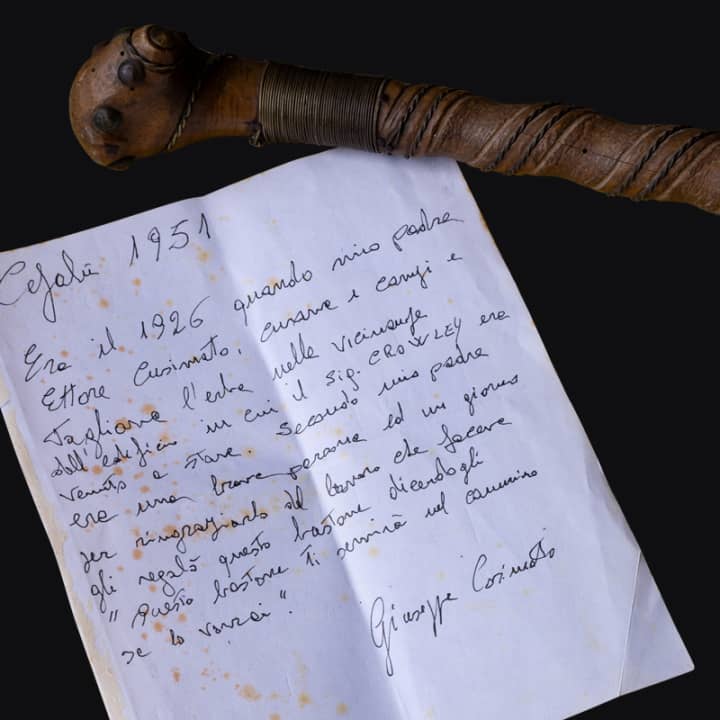 Cefalù 1951
Era il 1926 quando mio padre
Ettore Cusimato, curava i campi e
Tagliava l'erba nelle vicinanze
dall'edificio in cui il Sig. CROWLEY era
venuto a stare. Secondo mio padre
era una brava persona ed un giorno
per ringraziarlo del lavoro che faceva
gli regalò questo bastone dicendogli
"Questo bastone Ti servirà nel cammino
se lo vorrai".
Giuseppe Cosimato